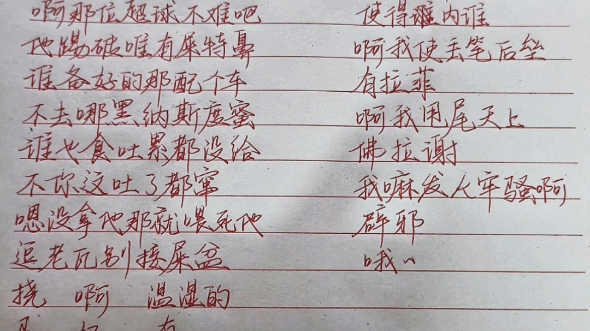 啊那位踢球不难吧
他踢破唯有屎特鼻
谁备好的那配个车
不去哪黑纳斯度蜜
谁也食吐累都没给
不你这吐了都富
嗯没拿他那就喂死他
逗老瓦别接屎盆
挠 啊 温湿的
使得谁内谁
啊我使丢笔后垒
有拉菲
啊我甩尾天上
佛拉谢
我嘛发人牢骚啊
辟邪
哦